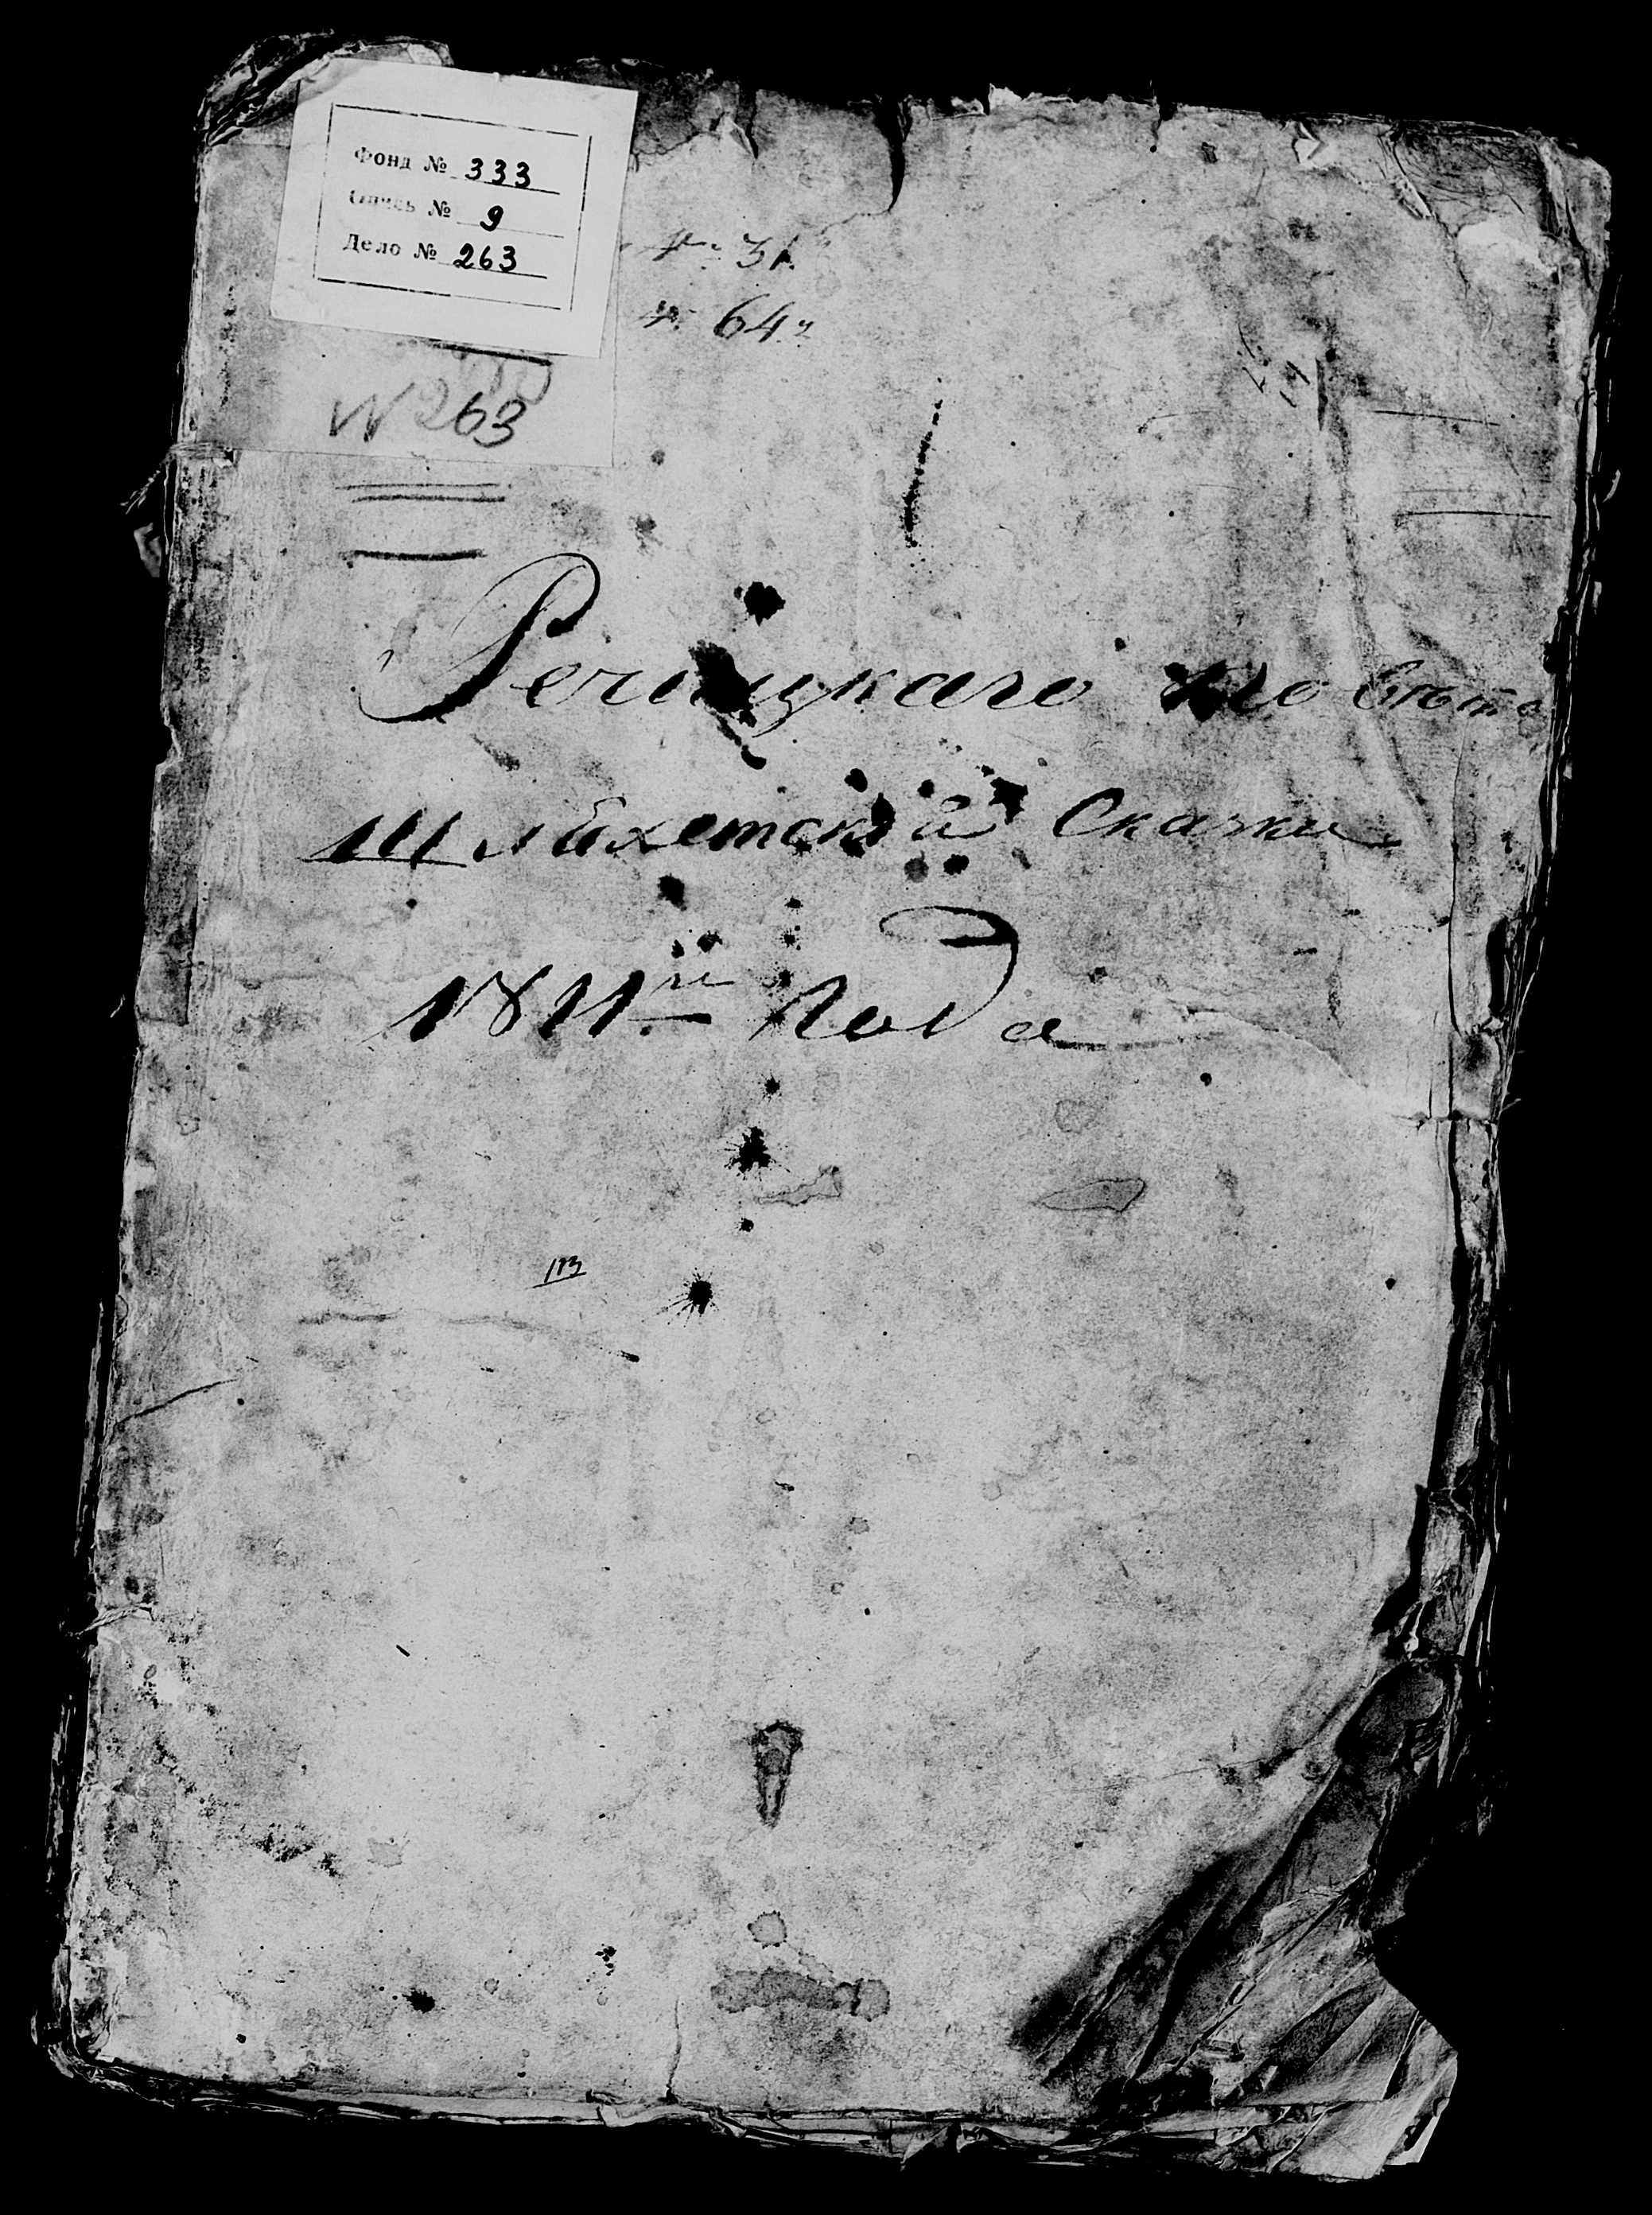 Фонд № 333
Опись № 9
Дело № 263
31.
64
N 263
Речицкаго повѣта
Шляхетскія Сказки
1811го Года
113